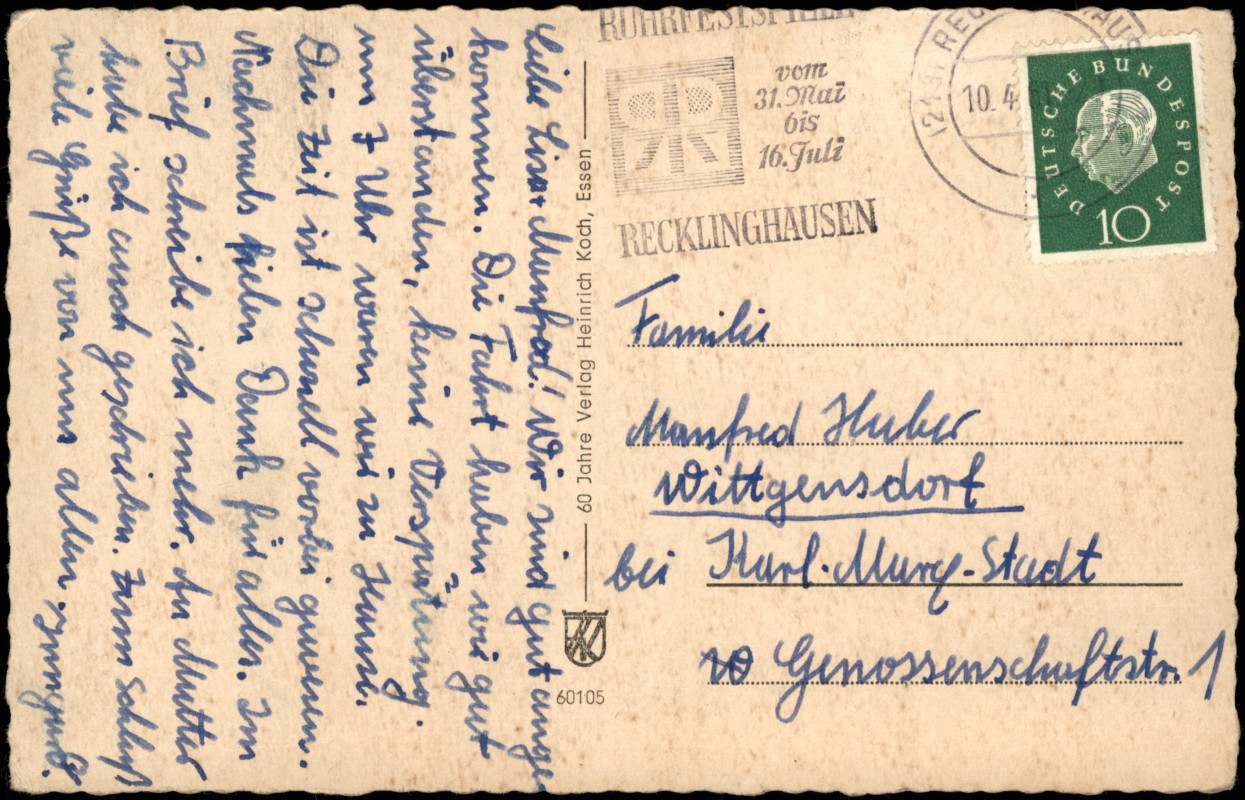 Liebe Lisa + Manfred! Wir sind gut ange-
kommen. Die Fahrt haben wir gut
überstanden, keine Verspätung.
um 7 Uhr waren wir zu Hause.
Die Zeit ist schnell vorbei gewesen.
Nochmals vielen Dank für alles. Im
Brief schreibe ich mehr. An Mutter
habe ich auch geschrieben. Zum Schluß
viele Grüße von uns allen. Irmgard.
60 Jahre Verlag Heinrich Koch, Essen
60105
RUHRFESTSPIELE
vom
31. Mai
bis
16. Juli
RECKLINGHAUSEN
(21a) REC HAUS
10. 4
DEUTSCHE BUNDESPOST
10
Familie
Manfred Huber
Wittgensdorf
bei Karl-Marx-Stadt
Genossenschaftstr. 1